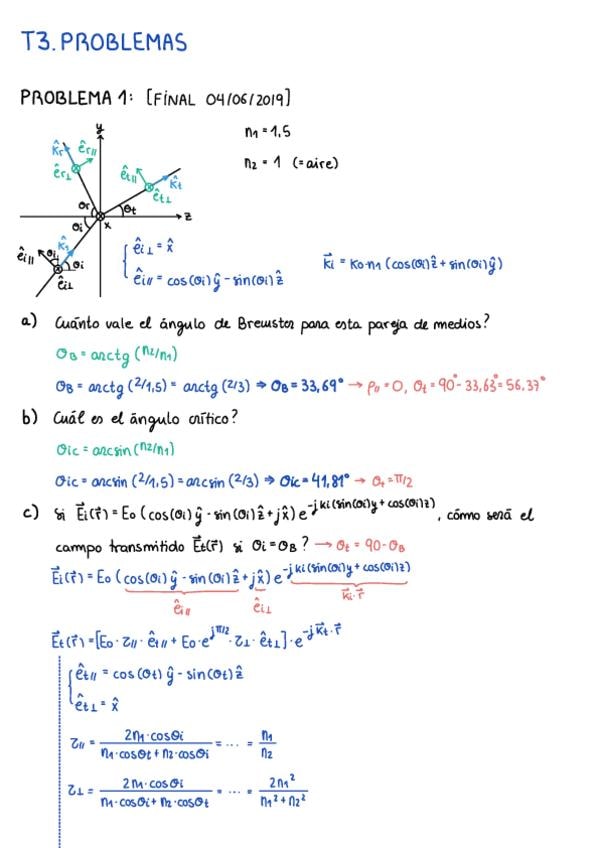 T3. PROBLEMAS
PROBLEMA 1: [FINAL 04/06/2019]
n1 = 1,5
n2 = 1 (=aire)
y
k̂r
êr∥
êr⊥
êt∥
k̂t
êt⊥
θr
θt
z
θi
x
k̂i
êi∥
θi
θi
êi⊥
{ êi⊥ = x̂
êi∥ = cos(θi)ŷ - sin(θi)ẑ
k⃗i = k0·n1 (cos(θi)ẑ + sin(θi)ŷ)
a) Cuánto vale el ángulo de Brewster para esta pareja de medios?
θB = arctg (n2/n1)
θB = arctg (1/1,5) = arctg (2/3) ⇒ θB = 33,69° → ρ∥ = 0, θt = 90° - 33,63° = 56.37°
b) Cuál es el ángulo crítico?
θic = arcsin (n2/n1)
θic = arcsin (1/1,5) = arcsin (2/3) ⇒ θic = 41,81° → θt = π/2
c) si E⃗i(r⃗) = E0 (cos(θi)ŷ - sin(θi)ẑ + jx̂) e^-jki(sin(θi)y + cos(θi)z), cómo será el
campo transmitido E⃗t(r⃗) si θi = θB? → θt = 90 - θB
E⃗i(r⃗) = E0 (cos(θi)ŷ - sin(θi)ẑ + jx̂) e^-jki(sin(θi)y + cos(θi)z)
êi∥ êi⊥ k⃗i·r⃗
E⃗t(r⃗) = [E0·τ∥·êt∥ + E0·e^jπ/2·τ⊥·êt⊥]·e^-jk⃗t·r⃗
{ êt∥ = cos(θt)ŷ - sin(θt)ẑ
êt⊥ = x̂
τ∥ = 2n1·cosθi / n1·cosθt + n2·cosθi = ... = n1/n2
τ⊥ = 2n1·cosθi / n1·cosθi + n2·cosθt = ... = 2n1² / n1² + n2²